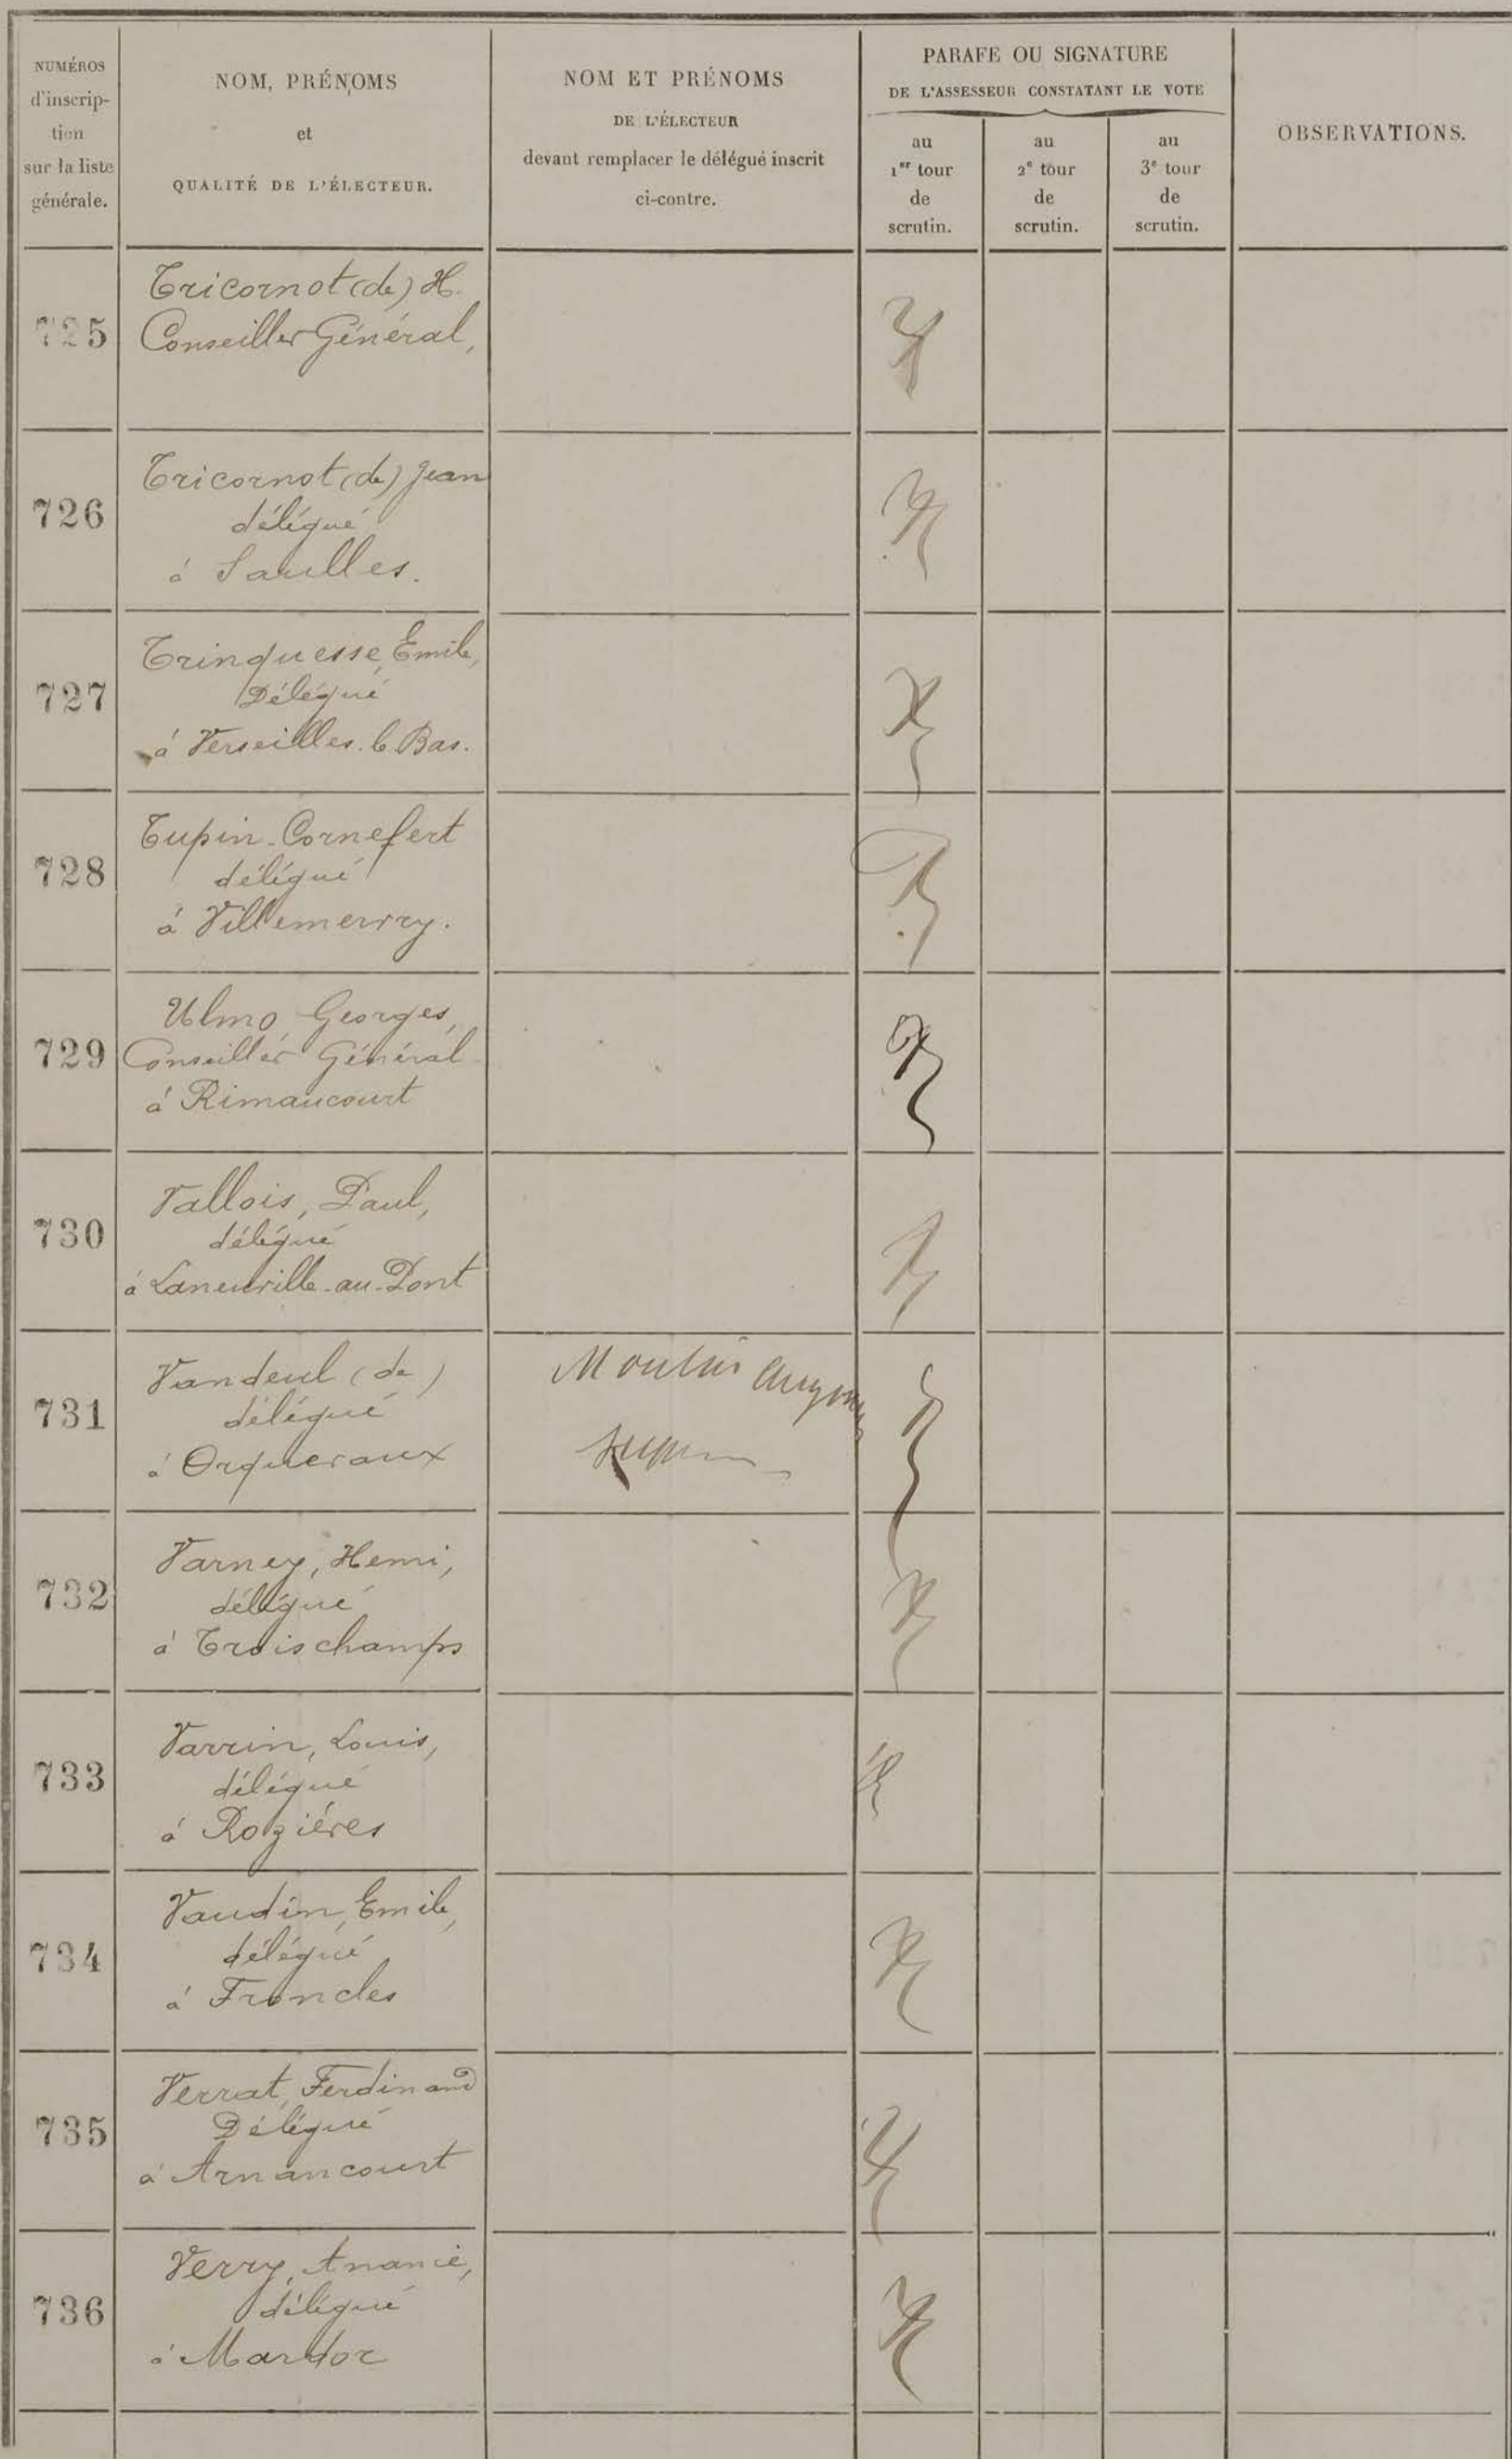 NUMÉROS
d'inscrip-
tion
sur la liste
générale.
NOM, PRÉNOMS
et
QUALITÉ DE L'ÉLECTEUR.
NOM ET PRÉNOMS
DE L'ÉLECTEUR
devant remplacer le délégué inscrit
ci-contre.
PARAFE OU SIGNATURE
DE L'ASSESSEUR CONSTATANT LE VOTE
au
1er tour
de
scrutin.
au
2e tour
de
scrutin.
au
3e tour
de
scrutin.
OBSERVATIONS.
725
Tricornot (de) H.
Conseiller Général,
726
Tricornot (de) Jean
délégué
à Saulles.
727
Trinquesse, Emile,
Délégué
à Verseilles-le-Bas.
728
Tupin-Cornefert
délégué
à Villemervry.
729
Ulmo, Georges,
Conseiller Général
à Rimaucourt
730
Vallois, Paul,
délégué
à Laneuville-au-Pont
731
Vandeul (de)
délégué
à Orquevaux
Moulin
732
Varney, Henri,
délégué
à Troischamps
733
Varrin, Louis,
délégué
à Rozières
734
Vaudin, Emile,
délégué
à Froncles
735
Verrat, Ferdinand
Délégué
à Arnancourt
736
Verry, Ananie,
délégué
à Mardor